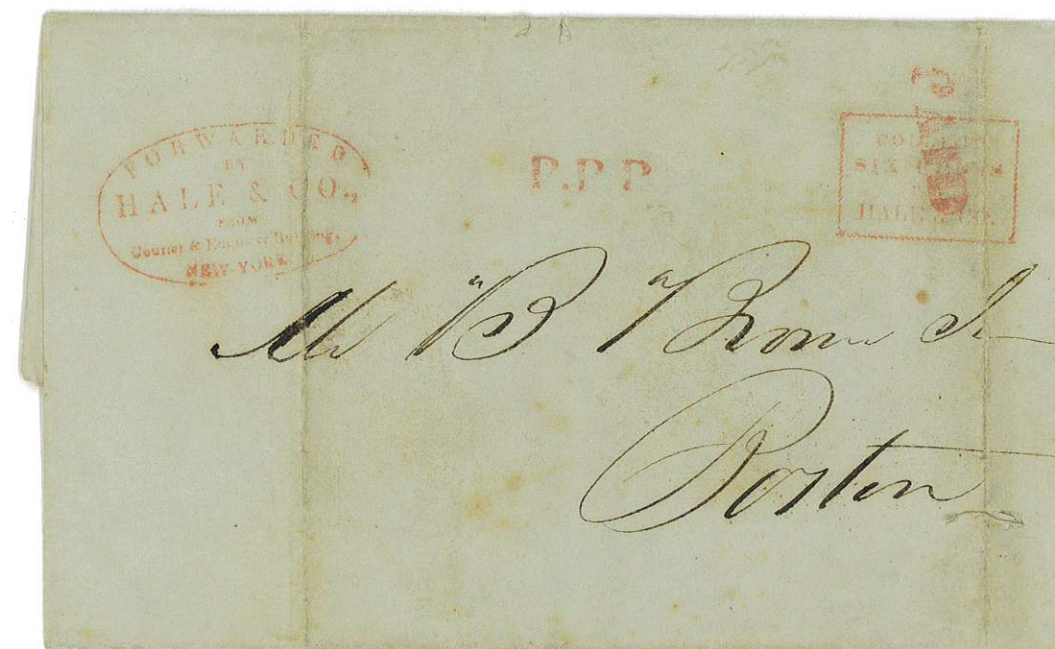 FORWARDED
BY
HALE & CO.,
FROM
Courier & Enquirer Buildings,
NEW YORK
P.P.P
COLLECT
SIX CENTS
HALE & CO.
PAID
Mr B Brown
Boston